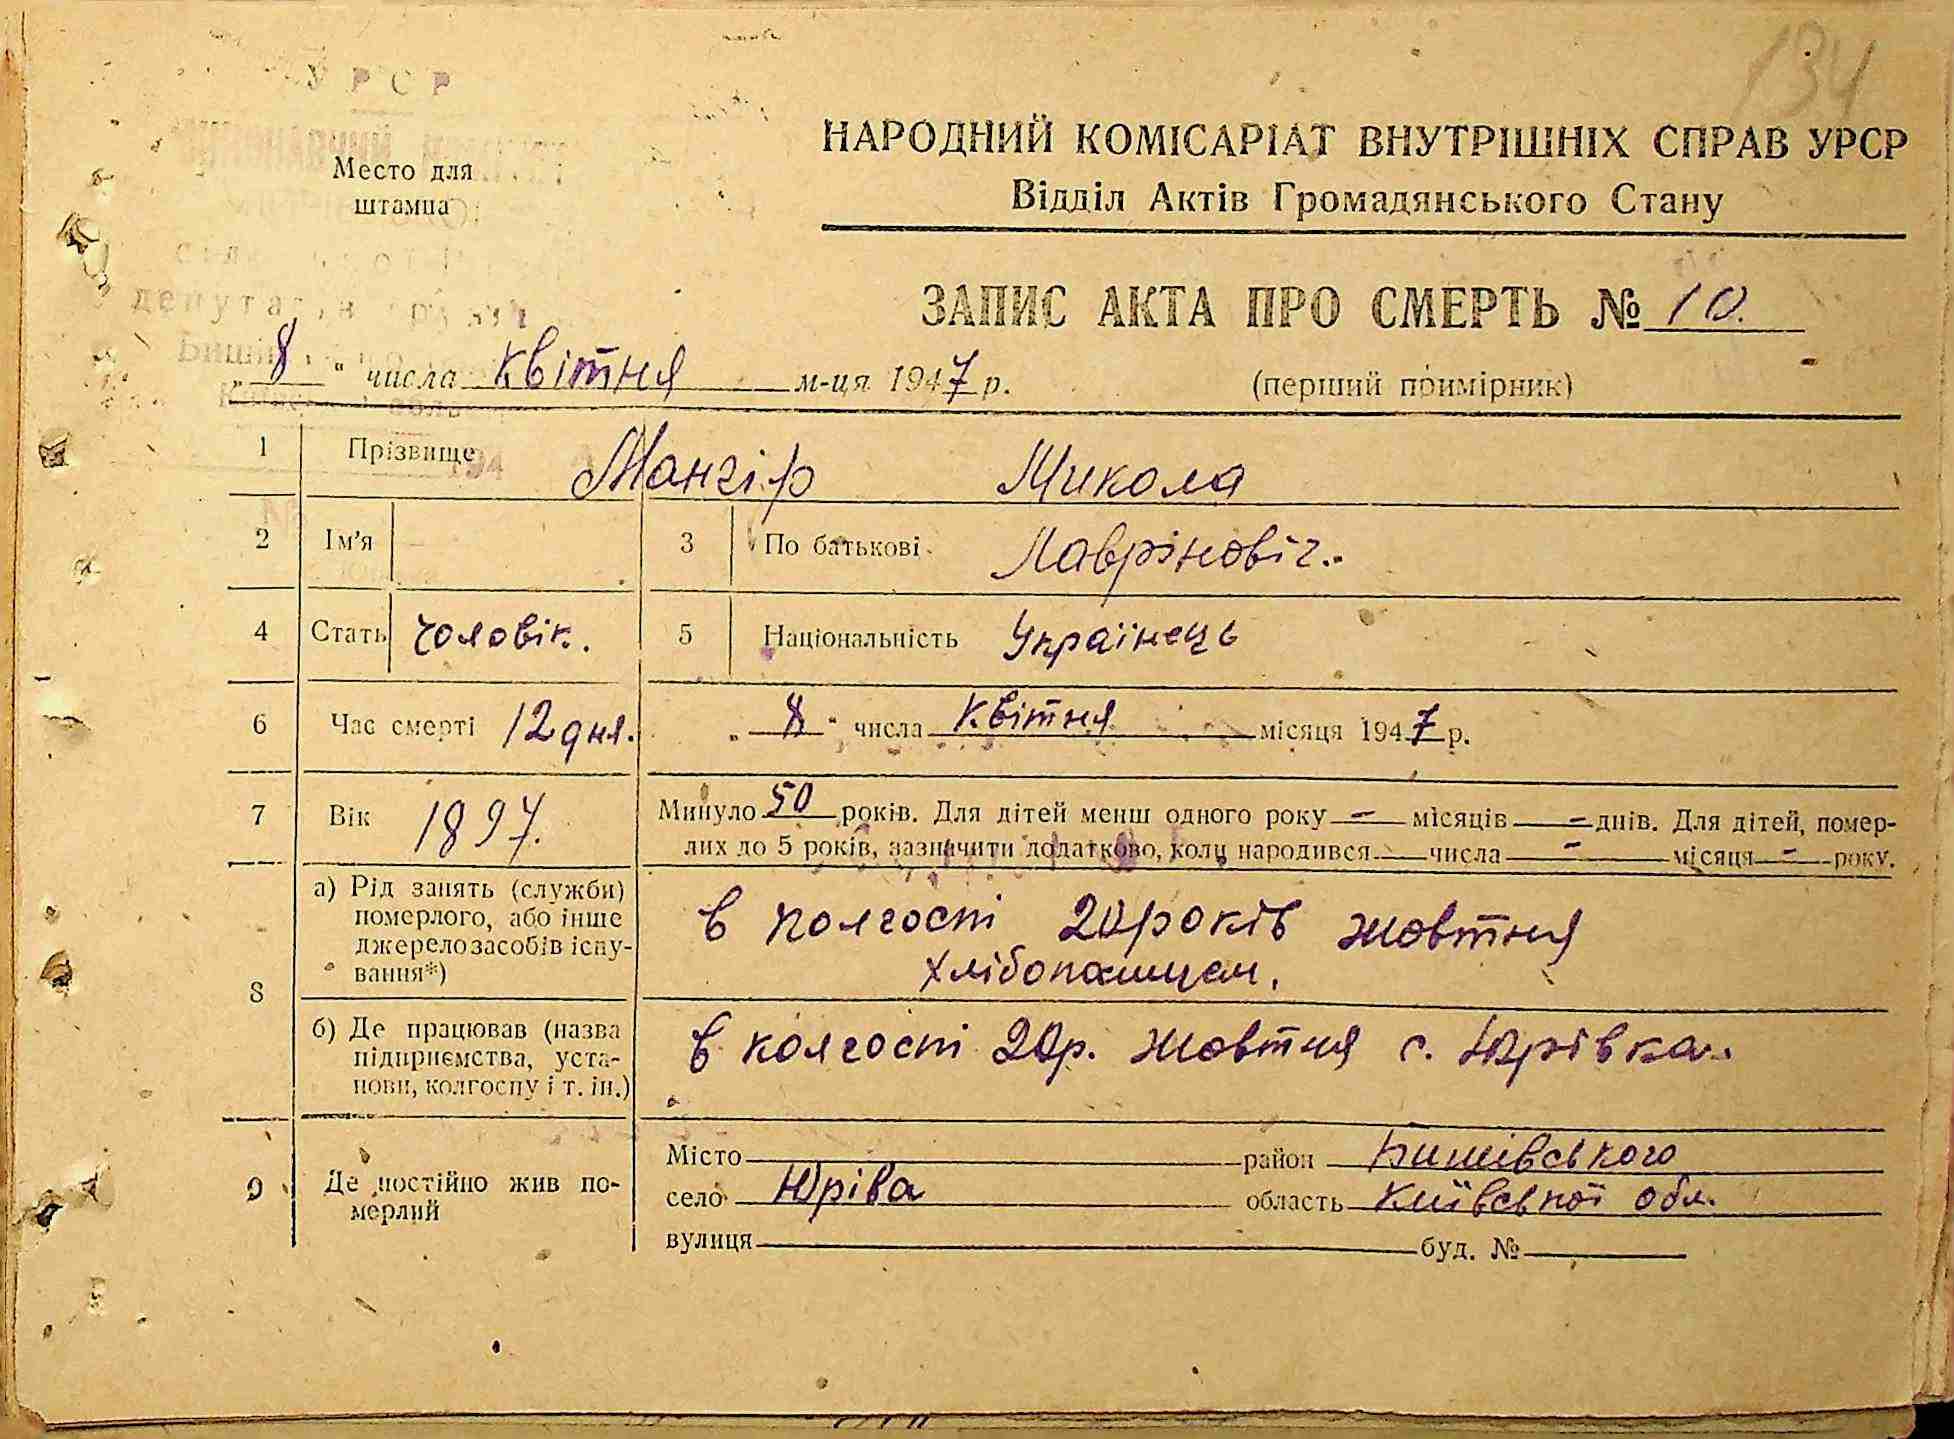 134
У Р С Р
Место для
штампа
НАРОДНИЙ КОМІСАРІАТ ВНУТРІШНІХ СПРАВ УРСР
Відділ Актів Громадянського Стану
ЗАПИС АКТА ПРО СМЕРТЬ № 10.
„ 8 “ числа квітня м-ця 1947 р.
(перший примірник)
1 Прізвище Мангір Микола
2 Ім'я 3 По батькові Лавріновіч.
4 Стать чоловік. 5 Національність Українець
6 Час смерті 12 дня. „ 8 “ числа квітня місяця 1947 р.
7 Вік 1897. Минуло 50 років. Для дітей менш одного року – місяців – днів. Для дітей, помер-
лих до 5 років, зазначити додатково, коли народився числа – місяця – року.
8 а) Рід занять (служби)
померлого, або інше
джерело засобів існу-
вання*)
в колгості 20 років жовтня
хлібопашцем.
б) Де працював (назва
підприємства, уста-
нови, колгоспу і т. ін.)
в колгості 20 р. жовтня с. Юрівка.
9 Де постійно жив по-
мерлий
Місто район Бишівського
село Юріва область Київської обл.
вулиця буд. №